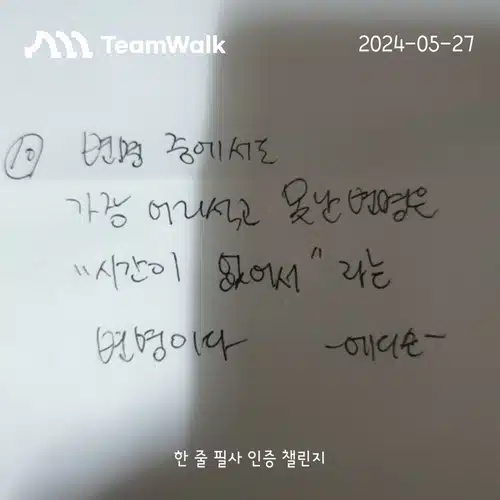 TeamWalk
2024-05-27
10 변명 중에서도
가장 어리석고 못난 변명은
"시간이 없어서" 라는
변명이다 -에디슨-
한 줄 필사 인증 챌린지